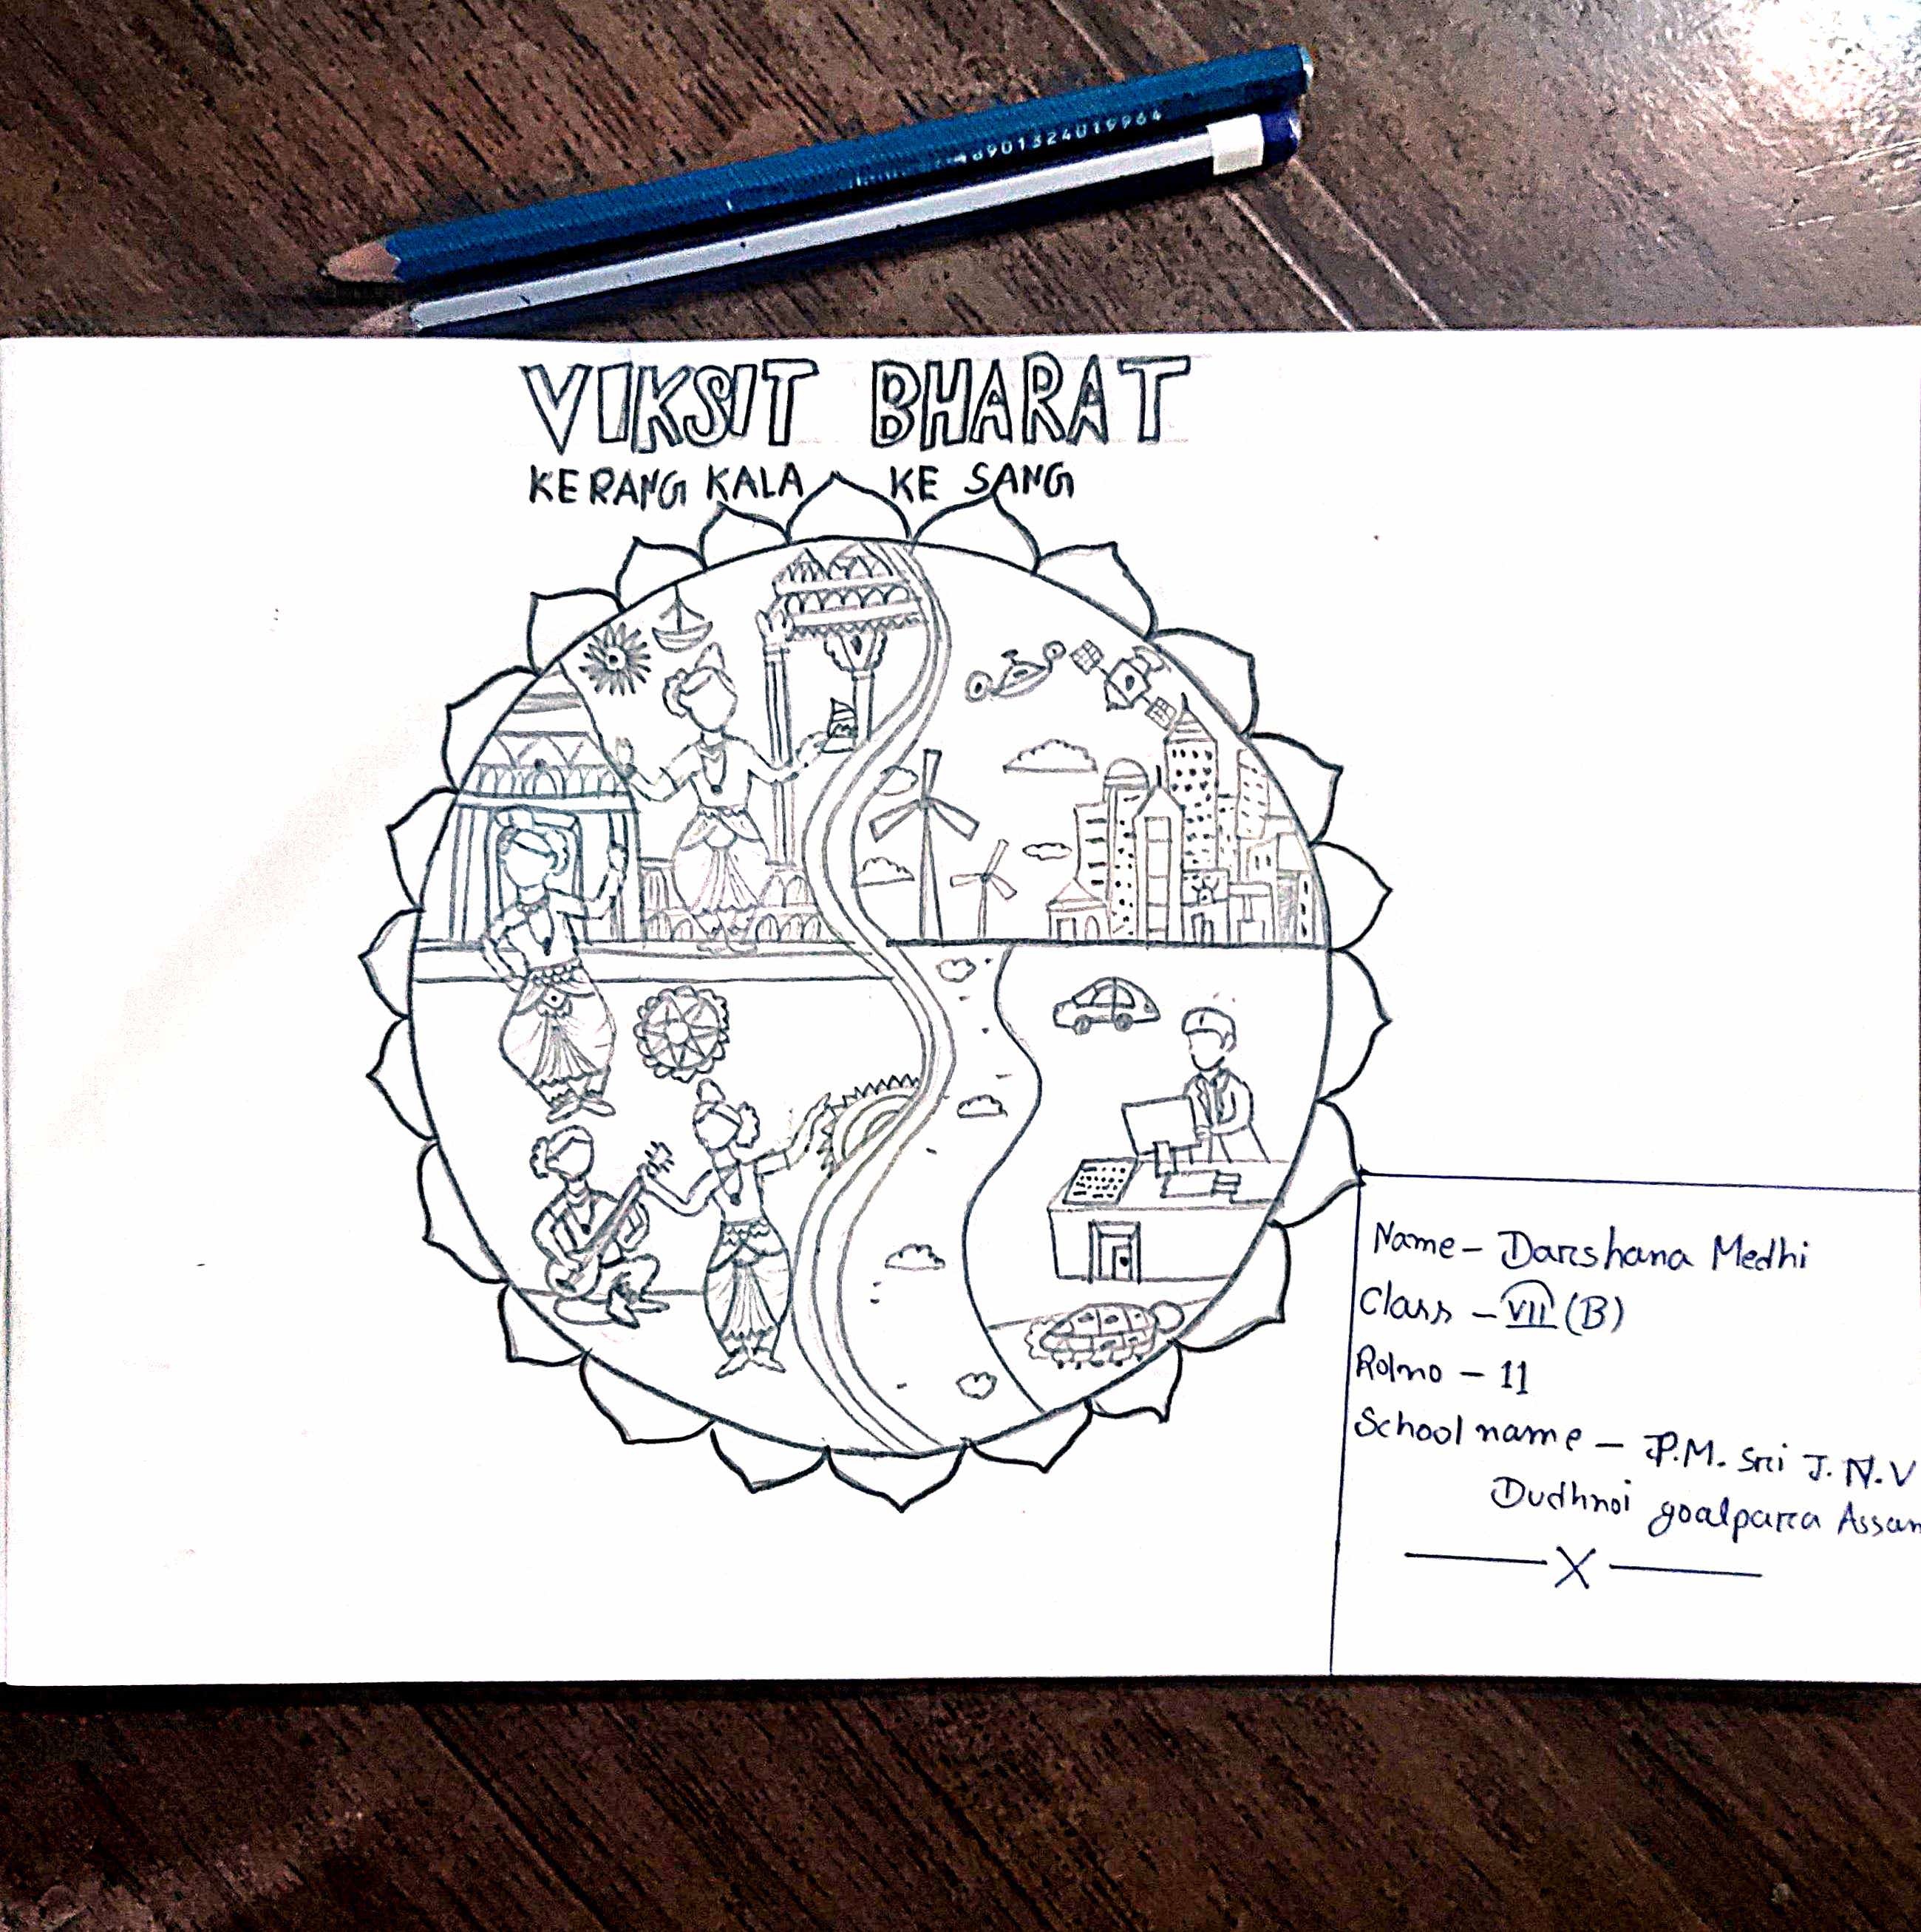 8901324019964
VIKSIT BHARAT
KE RANG KALA KE SANG
Name - Darshana Medhi
Class - VII (B)
Rolno - 11
School name - P.M. Sri J.N.V
Dudhnoi goalpara Assam
X